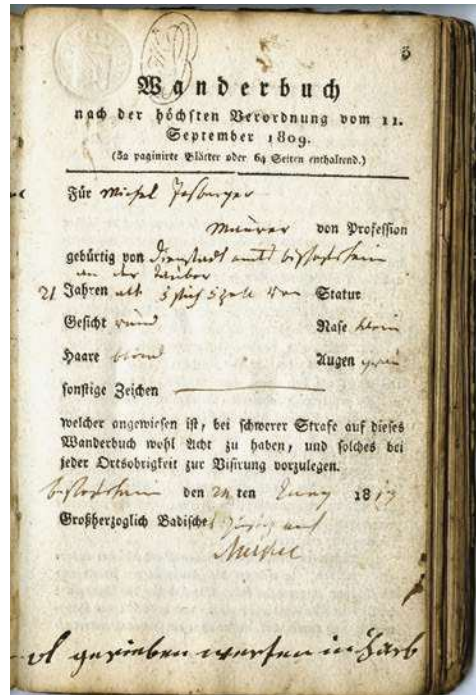 5
Wanderbuch
nach der höchsten Verordnung vom 11.
September 1809.
(32 paginirte Blätter oder 64 Seiten enthaltend.)
Für Michel
Maurer von Profession
gebürtig von Dienstadt amts bischofsheim
an der Tauber
21 Jahren alt 5 schuh 5 zoll Statur
Gesicht rund Nase klein
Haare blond Augen
sonstige Zeichen
welcher angewiesen ist, bei schwerer Strafe auf dieses
Wanderbuch wohl Acht zu haben, und solches bei
jeder Ortsobrigkeit zur Visirung vorzulegen.
bischofsheim den ten 18
Großherzoglich Badisches
gerieben werfen in